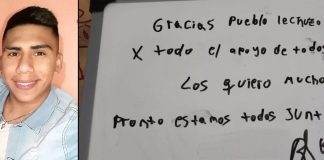 Gracias Pueblo lechuzo
X todo el apoyo de todos
Los quiero mucho
Pronto estamos todos Junt